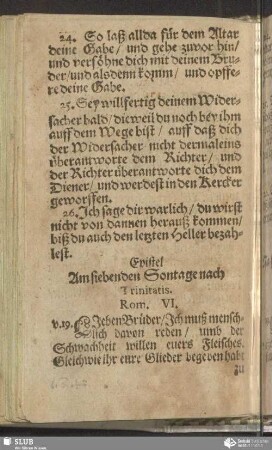 24. So laß allda für dem Altar
deine Gabe/ und gehe zuvor hin/
und versöhne dich mit deinem Bru-
der/ und alsdenn komm/ und opffe-
re deine Gabe.
25. Sey willfertig deinem Wider-
sacher bald/ dieweil du noch bey ihm
auff dem Wege bist/ auff daß dich
der Widersacher nicht dermaleins
überantworte dem Richter/ und
der Richter überantworte dich dem
Diener/ und werdest in den Kercker
geworffen.
26. Ich sage dir warlich/ du wirst
nicht von dannen herauß kommen/
biß du auch den letzten Heller bezah-
lest.
Epistel
Am siebenden Sontage nach
Trinitatis.
Rom. VI.
v.19. LIeben Brüder/ Ich muß mensch-
lich davon reden/ umb der
Schwachheit willen euers Fleisches.
Gleich wie ihr eure Glieder begeben habt
zu
SLUB
Wir führen Wissen.